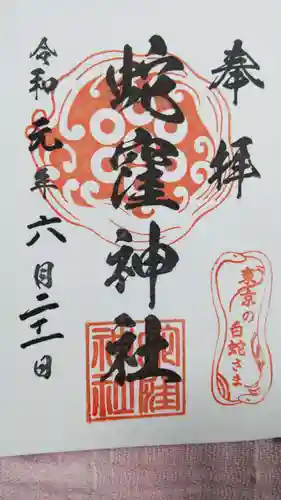 奉拝
蛇窪神社
令和元年六月二十一日
東京の白蛇さま
蛇窪神社